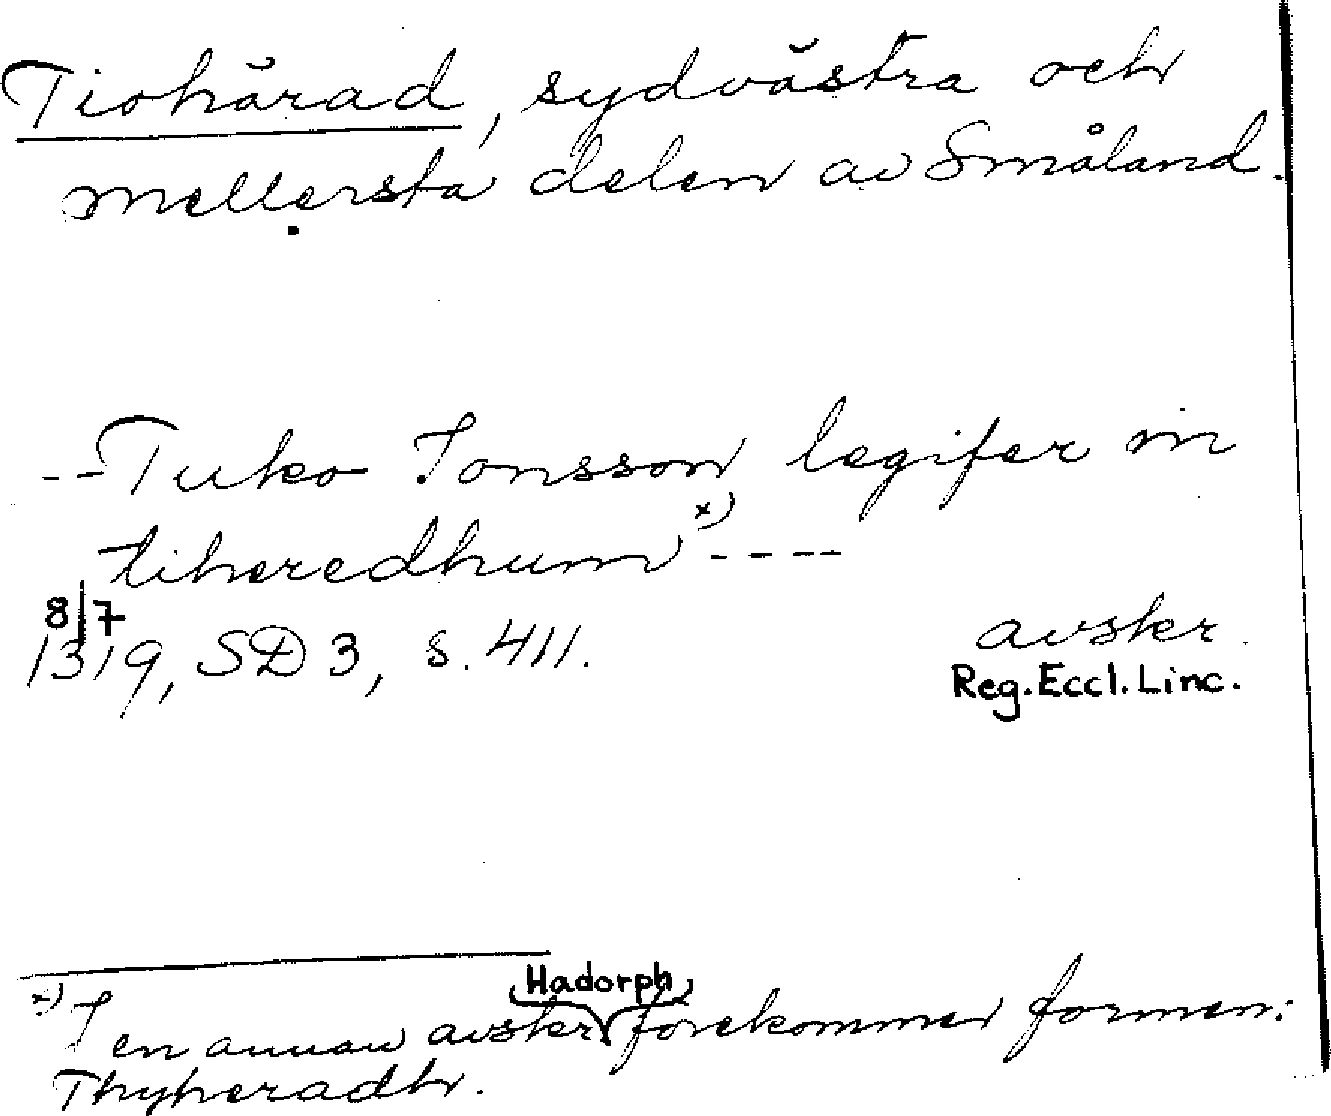 Tiohärad, sydvästra och
mellersta delen av Småland.
--Tuko Jonsson legifer in
tiheredhum x) ----
8/7
1319, SD 3, s. 411.
avskr.
Reg. Eccl. Linc.
Hadorph
x) I en annan avskr förekommer formen:
Thyheradh.